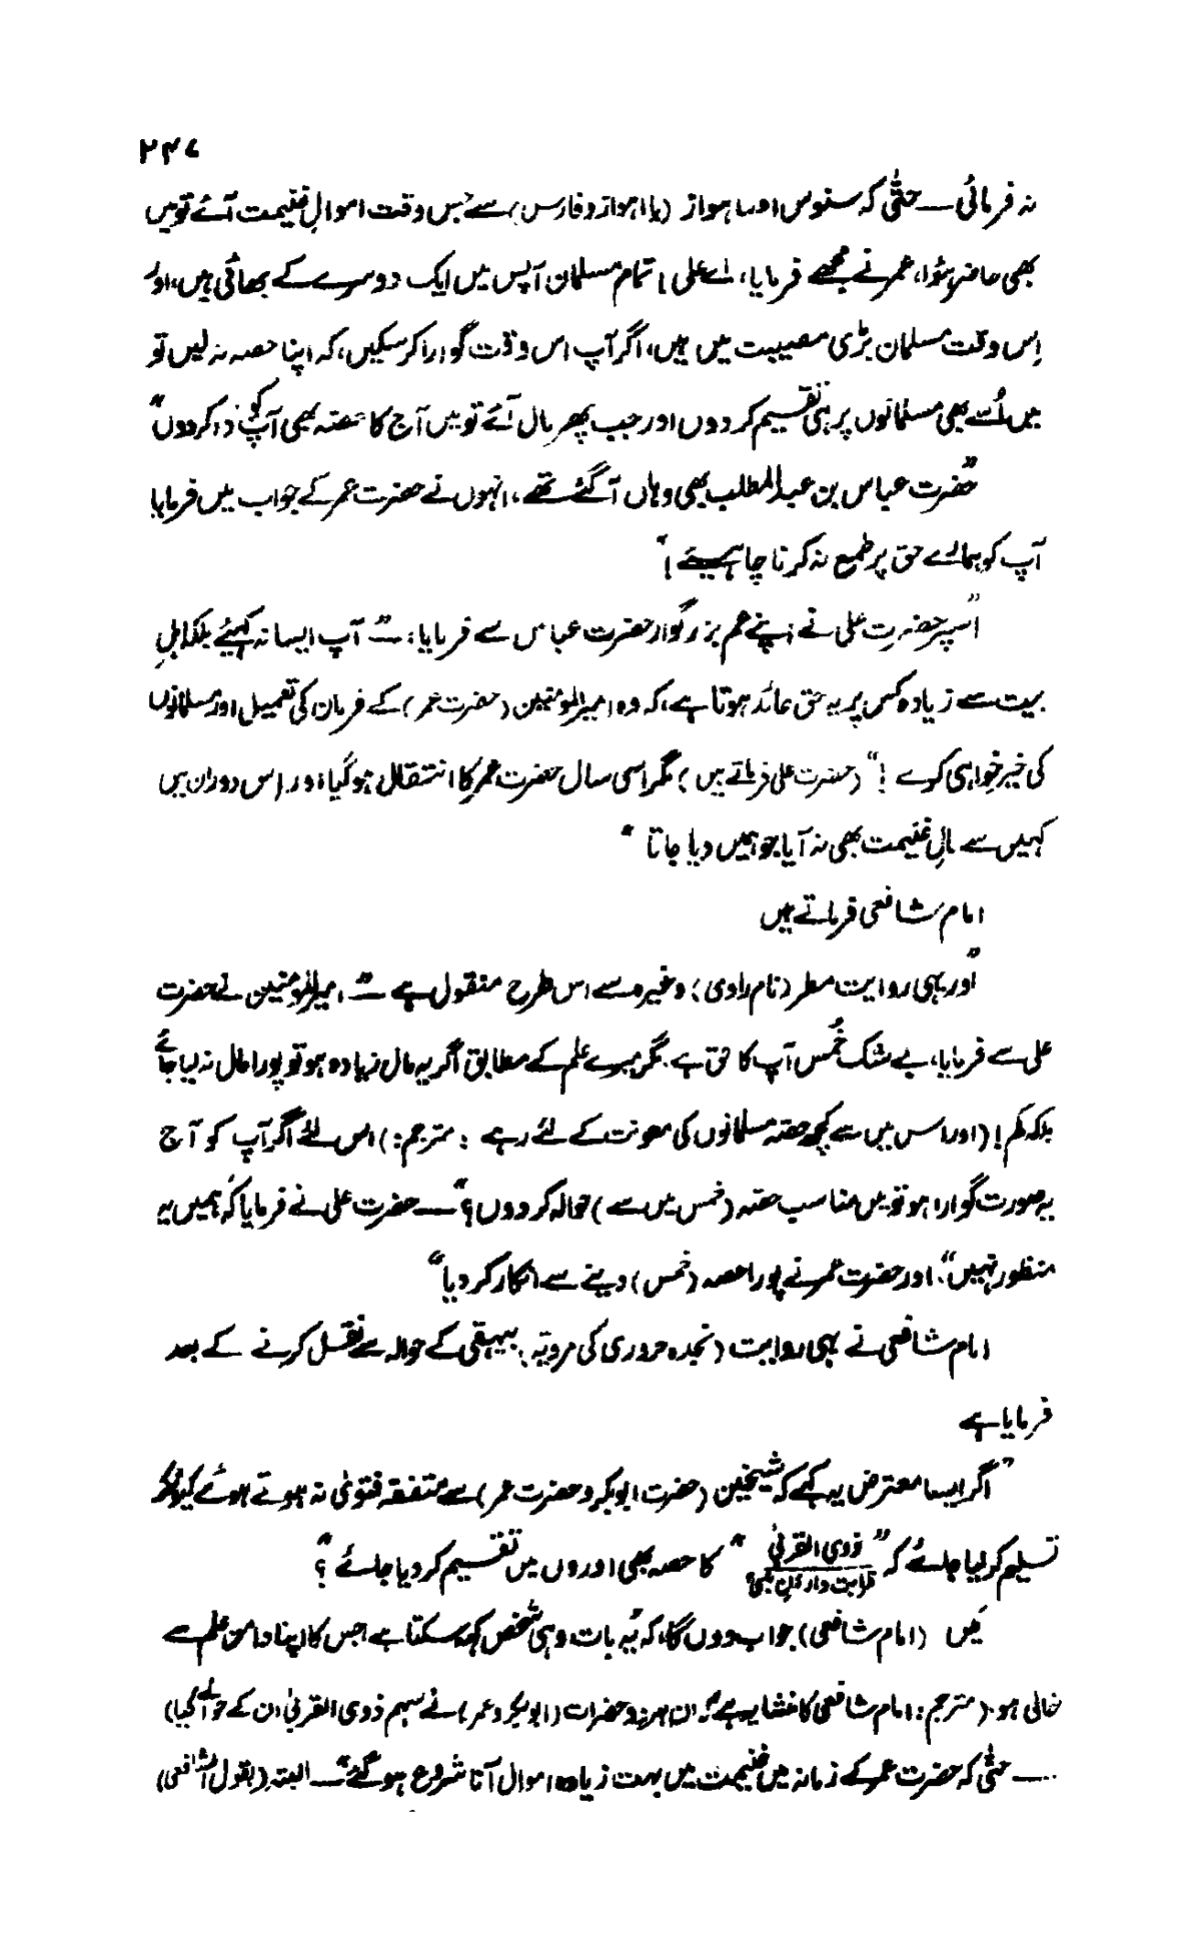 ۲۴۷
نہ فرمائی — حتّٰی کہ سنوس اور اہواز (یا اہواز و فارس) سے جس وقت اموالِ غنیمت آئے تو میں
بھی حاضر ہوا، عمر نے مجھے فرمایا، اے علی! تمام مسلمان آپس میں ایک دوسرے کے بھائی ہیں، اور
اِس وقت مسلمان بڑی مصیبت میں ہیں، اگر آپ اس وقت گوارا کر سکیں، کہ اپنا حصہ نہ لیں تو
میں اُسے بھی مسلمانوں پر ہی تقسیم کر دوں اور جب پھر مال آئے تو میں آج کا حصّہ بھی آپ کو ادا کر دوں"
"حضرت عباس بن عبدالمطلب بھی وہاں آ گئے تھے، انہوں نے حضرت عمر کے جواب میں فرمایا
آپ کو ہمارے حق پر طمع نہ کرنا چاہیئے!"
"اس پر حضرتِ علی نے اپنے عم بزرگوار حضرت عباس سے فرمایا: — "آپ ایسا نہ کہیئے بلکہ اہلِ
بیت سے زیادہ کس پر یہ حق عائد ہوتا ہے، کہ وہ امیرالمومنین (حضرت عمر) کے فرمان کی تعمیل اور مسلمانوں
کی خیر خواہی کرے!" (حضرت علی فرماتے ہیں) مگر اسی سال حضرت عمر کا انتقال ہو گیا اور اِس دوران میں
کہیں سے مالِ غنیمت بھی نہ آیا جو ہمیں دیا جاتا"
امام شافعی فرماتے ہیں
"اور یہی روایت مطر (نام راوی) وغیرہ سے اس طرح منقول ہے — "امیرالمومنین نے حضرت
علی سے فرمایا، بے شک خُمس آپ کا حق ہے۔ مگر میرے علم کے مطابق اگر یہ مال زیادہ ہو تو پورا مال نہ لیا جائے
بلکہ کم! (اور اس میں سے کچھ حصّہ مسلمانوں کی معونت کے لئے رہے: مترجم:) اس لئے اگر آپ کو آج
یہ صورت گوارا ہو تو میں مناسب حصّہ (خمس میں سے) حوالہ کر دوں؟" — حضرت علی نے فرمایا کہ "ہمیں یہ
منظور نہیں"۔ اور حضرت عمر نے پورا حصہ (خمس) دینے سے انکار کر دیا"
امام شافعی نے یہی روایت (نجدہ حروری کی مرویّہ) بیہقی کے حوالہ سے نقل کرنے کے بعد
فرمایا ہے
"اگر ایسا معترض یہ کہے کہ شیخین (حضرت ابوبکر و حضرت عمر) سے متفقہ فتویٰ نہ ہوتے ہوئے کیونکر
تسلیم کر لیا جائے کہ "ذوی القربیٰ" کا حصہ بھی اوروں میں تقسیم کر دیا جائے"؟
قرابت دارانِ نبی؟
میں (امام شافعی) جواب دوں گا، کہ یہ بات وہی شخص کہہ سکتا ہے جس کا اپنا دامن علم سے
خالی ہو۔ (مترجم: امام شافعی کا منشا یہ ہے کہ ان ہر دو حضرات (ابوبکر و عمر) نے سہم ذوی القربیٰ ان کے حوالے کیا)
.... — حتّٰی کہ حضرت عمر کے زمانہ میں غنیمت میں بہت زیادہ اموال آنا شروع ہو گئے" — البتہ (بقول الشافعی)